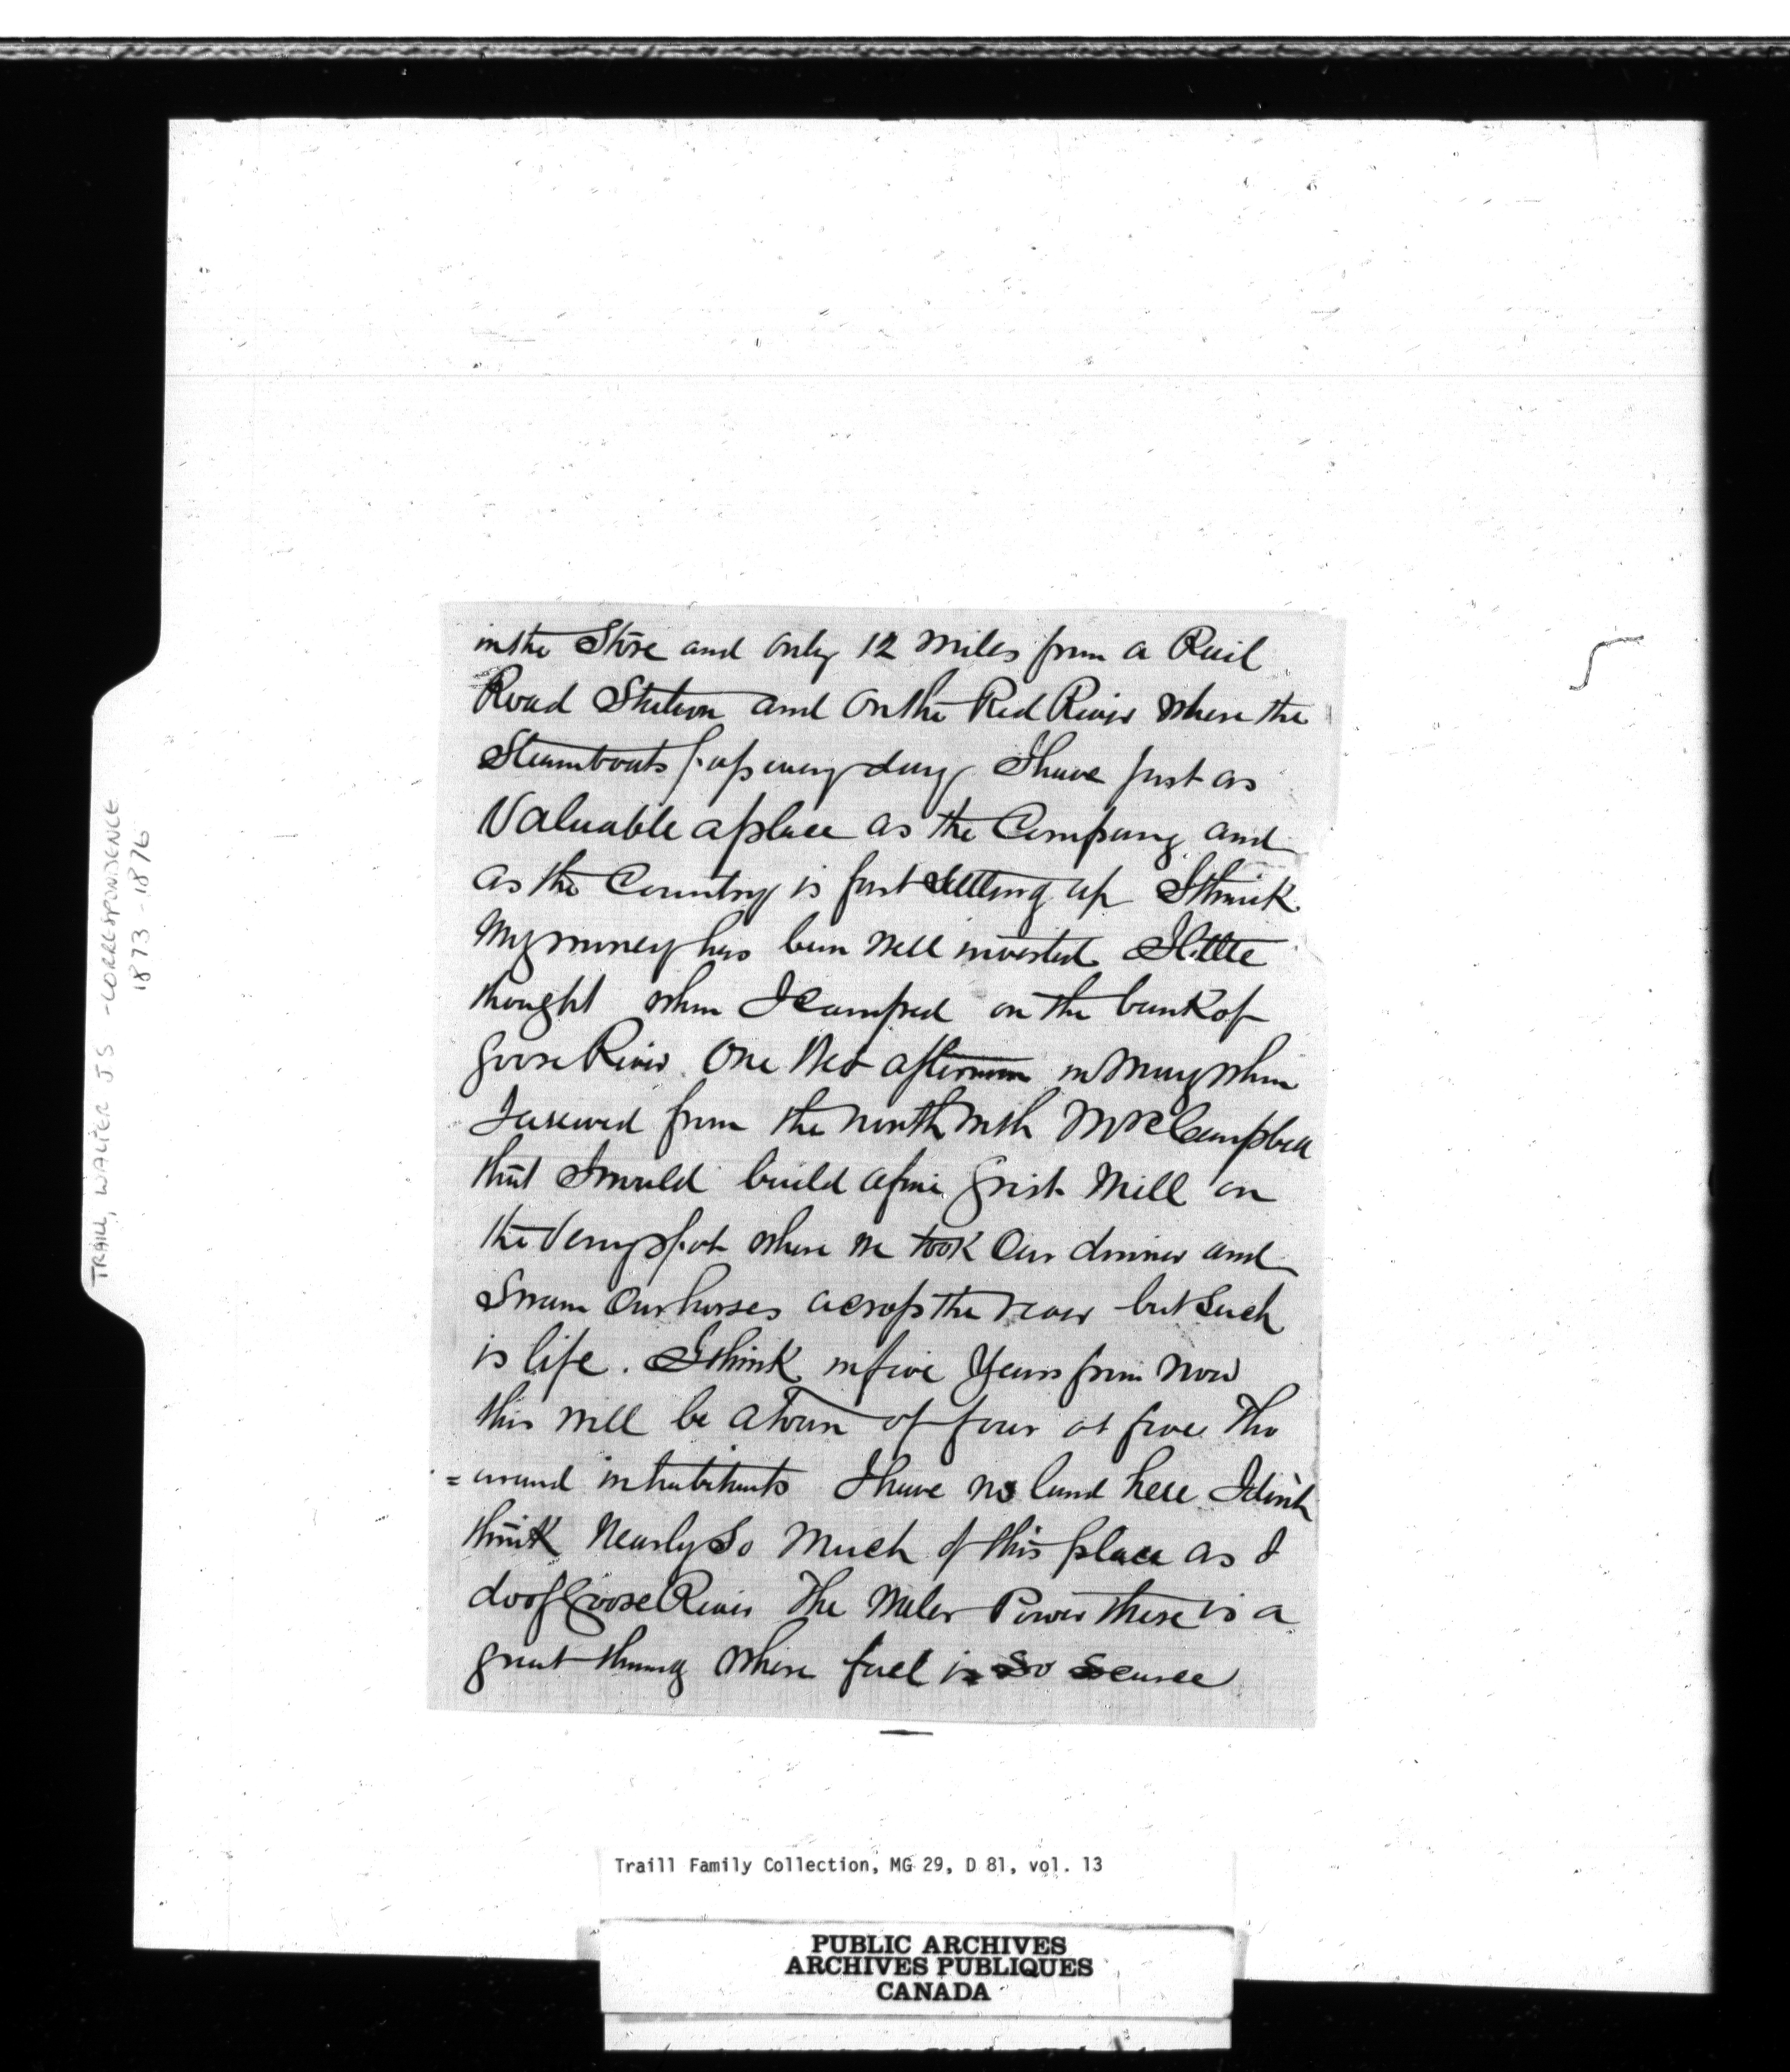 in the Store and only 12 miles from a Rail
Road Station and on the Red River where the
Steamboats pass every day I have just as
Valuable a place as the Company and
as the Country is fast settling up I think
My money has been well invested I little
thought when I camped on the bank of
Goose River One Wet afternoon in May when
I arrived from the north with Mr R Campbell
that I would build a fine Grist Mill on
the Very spot where we took Our dinner and
Swam Our horses across the river but Such
is life. I think in five Years from Now
this will be a town of four or five Tho
=usand inhabitants I have no land here I don't
think Nearly So Much of this place as I
do of Goose River The Water Power there is a
great thing where fuel is So Scarce
TRAILL, WALTER J S - CORRESPONDENCE
1873-1876
Traill Family Collection, MG 29, D 81, vol. 13
PUBLIC ARCHIVES
ARCHIVES PUBLIQUES
CANADA